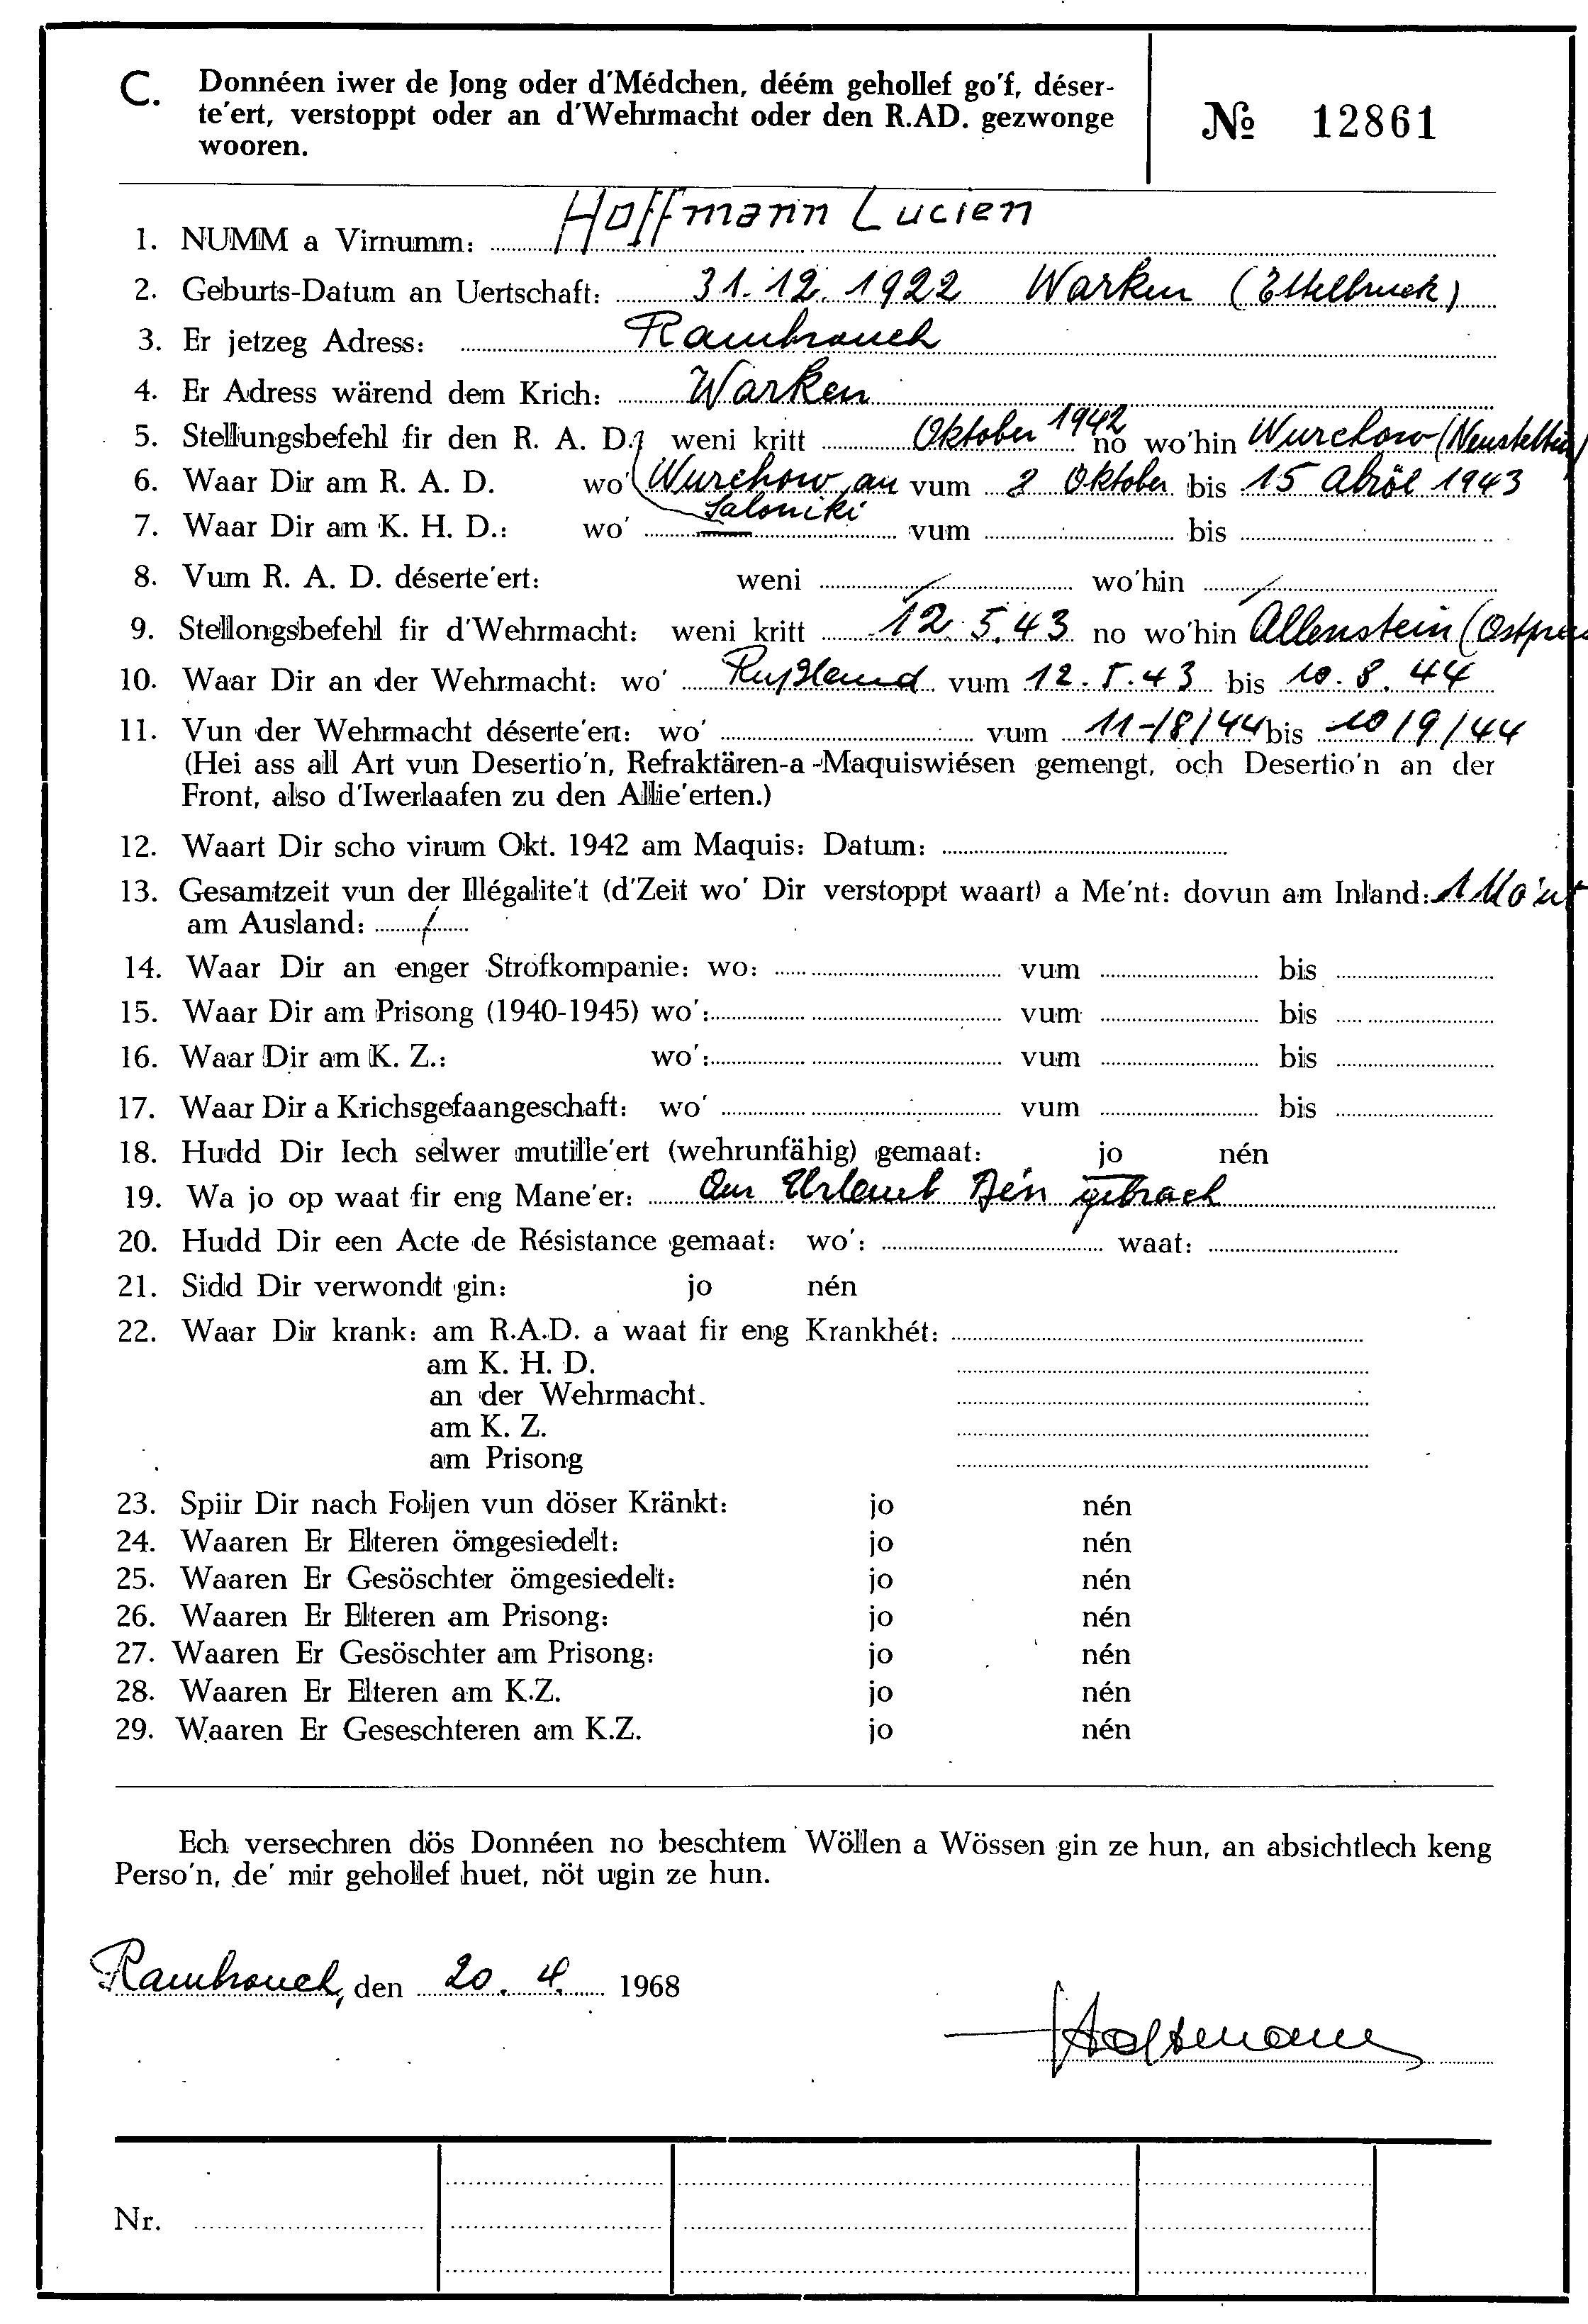 C. Donnéen iwer de Jong oder d'Médchen, déém gehollef go'f, déser-
te'ert, verstoppt oder an d'Wehrmacht oder den R.AD. gezwonge
wooren.
№ 12861
1. NUMM a Virnumm: Hoffmann Lucien
2. Geburts-Datum an Uertschaft: 31.12.1922 Warken (Ettelbruck)
3. Er jetzeg Adress: Rambrouch
4. Er Adress wärend dem Krich: Warken
5. Stellungsbefehl fir den R. A. D.: weni kritt Oktober 1942 no wo'hin Wurchow (Neustettin)
6. Waar Dir am R. A. D. wo' Wurchow, an Saloniki vum 2 Oktober bis 15 Abröl 1943
7. Waar Dir am K. H. D.: wo' — vum bis
8. Vum R. A. D. déserte'ert: weni / wo'hin /
9. Stellongsbefehl fir d'Wehrmacht: weni kritt 12.5.43 no wo'hin Allenstein (Ostpreus
10. Waar Dir an der Wehrmacht: wo' Rußland vum 12.5.43 bis 10.8.44
11. Vun der Wehrmacht déserte'ert: wo' vum 11/8/44 bis 10/9/44
(Hei ass all Art vun Desertio'n, Refraktären-a-Maquiswiésen gemengt, och Desertio'n an der
Front, also d'Iwerlaafen zu den Allie'erten.)
12. Waart Dir scho virum Okt. 1942 am Maquis: Datum:
13. Gesamtzeit vun der Illégalite't (d'Zeit wo' Dir verstoppt waart) a Me'nt: dovun am Inland: 1 Mo'nt
am Ausland: /
14. Waar Dir an enger Strofkompanie: wo: vum bis
15. Waar Dir am Prisong (1940-1945) wo': vum bis
16. Waar Dir am K. Z.: wo': vum bis
17. Waar Dir a Krichsgefaangeschaft: wo' vum bis
18. Hudd Dir Iech selwer mutille'ert (wehrunfähig) gemaat: jo nén
19. Wa jo op waat fir eng Mane'er: Urlaub gebrach
20. Hudd Dir een Acte de Résistance gemaat: wo': waat:
21. Sidd Dir verwondt gin: jo nén
22. Waar Dir krank: am R.A.D. a waat fir eng Krankhét:
am K. H. D.
an der Wehrmacht.
am K. Z.
am Prisong
23. Spiir Dir nach Foljen vun döser Kränkt: jo nén
24. Waaren Er Elteren ömgesiedelt: jo nén
25. Waaren Er Gesöschter ömgesiedelt: jo nén
26. Waaren Er Elteren am Prisong: jo nén
27. Waaren Er Gesöschter am Prisong: jo nén
28. Waaren Er Elteren am K.Z. jo nén
29. Waaren Er Geseschteren am K.Z. jo nén
Ech versechren dös Donnéen no beschtem Wöllen a Wössen gin ze hun, an absichtlech keng
Perso'n, de' mir gehollef huet, nöt ugin ze hun.
Rambrouch, den 20. 4. 1968
Hoffmann
Nr.